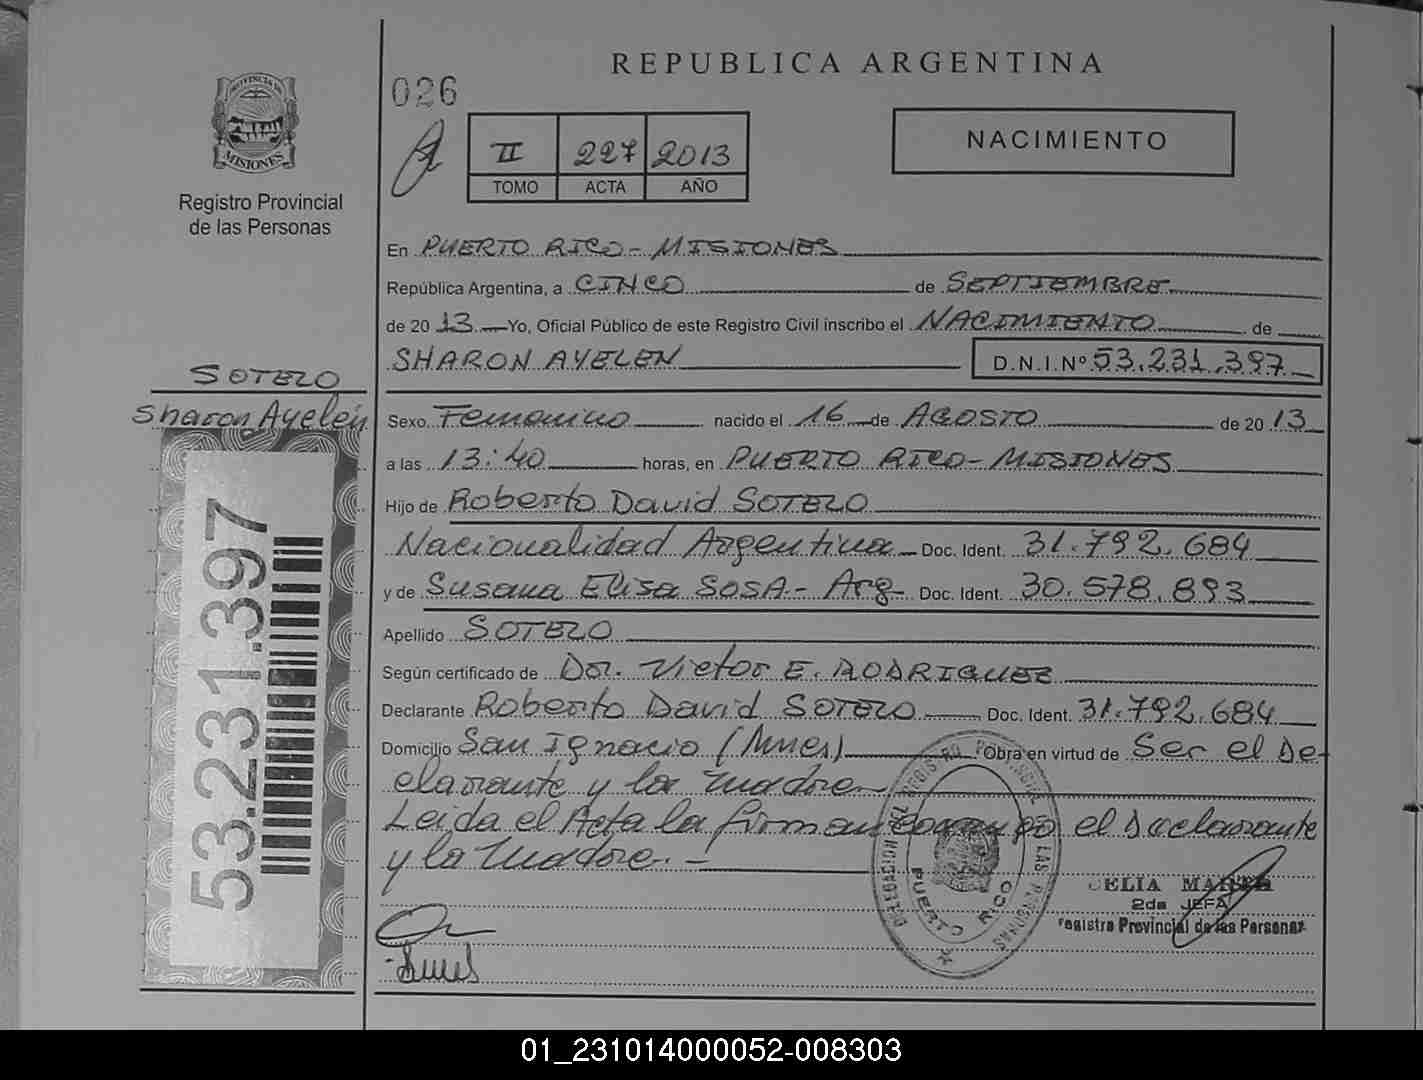 REPUBLICA ARGENTINA
026
PROVINCIA DE
MISIONES
Registro Provincial
de las Personas
II 227 2013
TOMO ACTA AÑO
NACIMIENTO
En PUERTO RICO - MISIONES
República Argentina, a CINCO de SEPTIEMBRE
de 2013 Yo, Oficial Público de este Registro Civil inscribo el NACIMIENTO de
SHARON AYELEN D.N.I. Nº 53.231.397
SOTELO
Sharon Ayelén
Sexo Femenino nacido el 16 de AGOSTO de 2013
a las 13:40 horas, en PUERTO RICO - MISIONES
Hijo de Roberto David SOTELO
Nacionalidad Argentina Doc. Ident. 31.792.684
y de Susana Elisa SOSA - Arg Doc. Ident. 30.578.893
Apellido SOTELO
Según certificado de Dor. Victor E. RODRIGUEZ
Declarante Roberto David SOTELO Doc. Ident. 31.792.684
Domicilio San Ignacio (Mnes) Obra en virtud de Ser el De-
clarante y la madre
Leida el Acta la firman conmigo el Declarante
y la Madre. -
53.231.397
DELEGACION DEL REGISTRO PROVINCIAL DE LAS PERSONAS
PUERTO RICO
CELIA
2da JEFA
Registro Provincial de las Personas
01_231014000052-008303